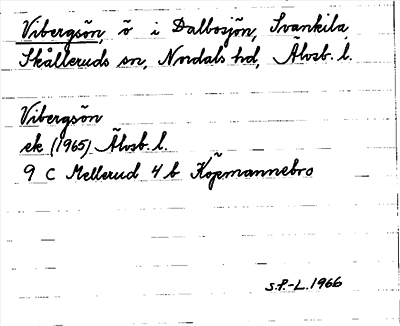 Vibergsön, ö i Dalbosjön, Svankila,
Skålleruds sn, Nordals hd, Älvsb. l.
Vibergsön
ek (1965) Älvsb. l.
9 C Mellerud 4 b Köpmannebro
S.P.-L. 1966